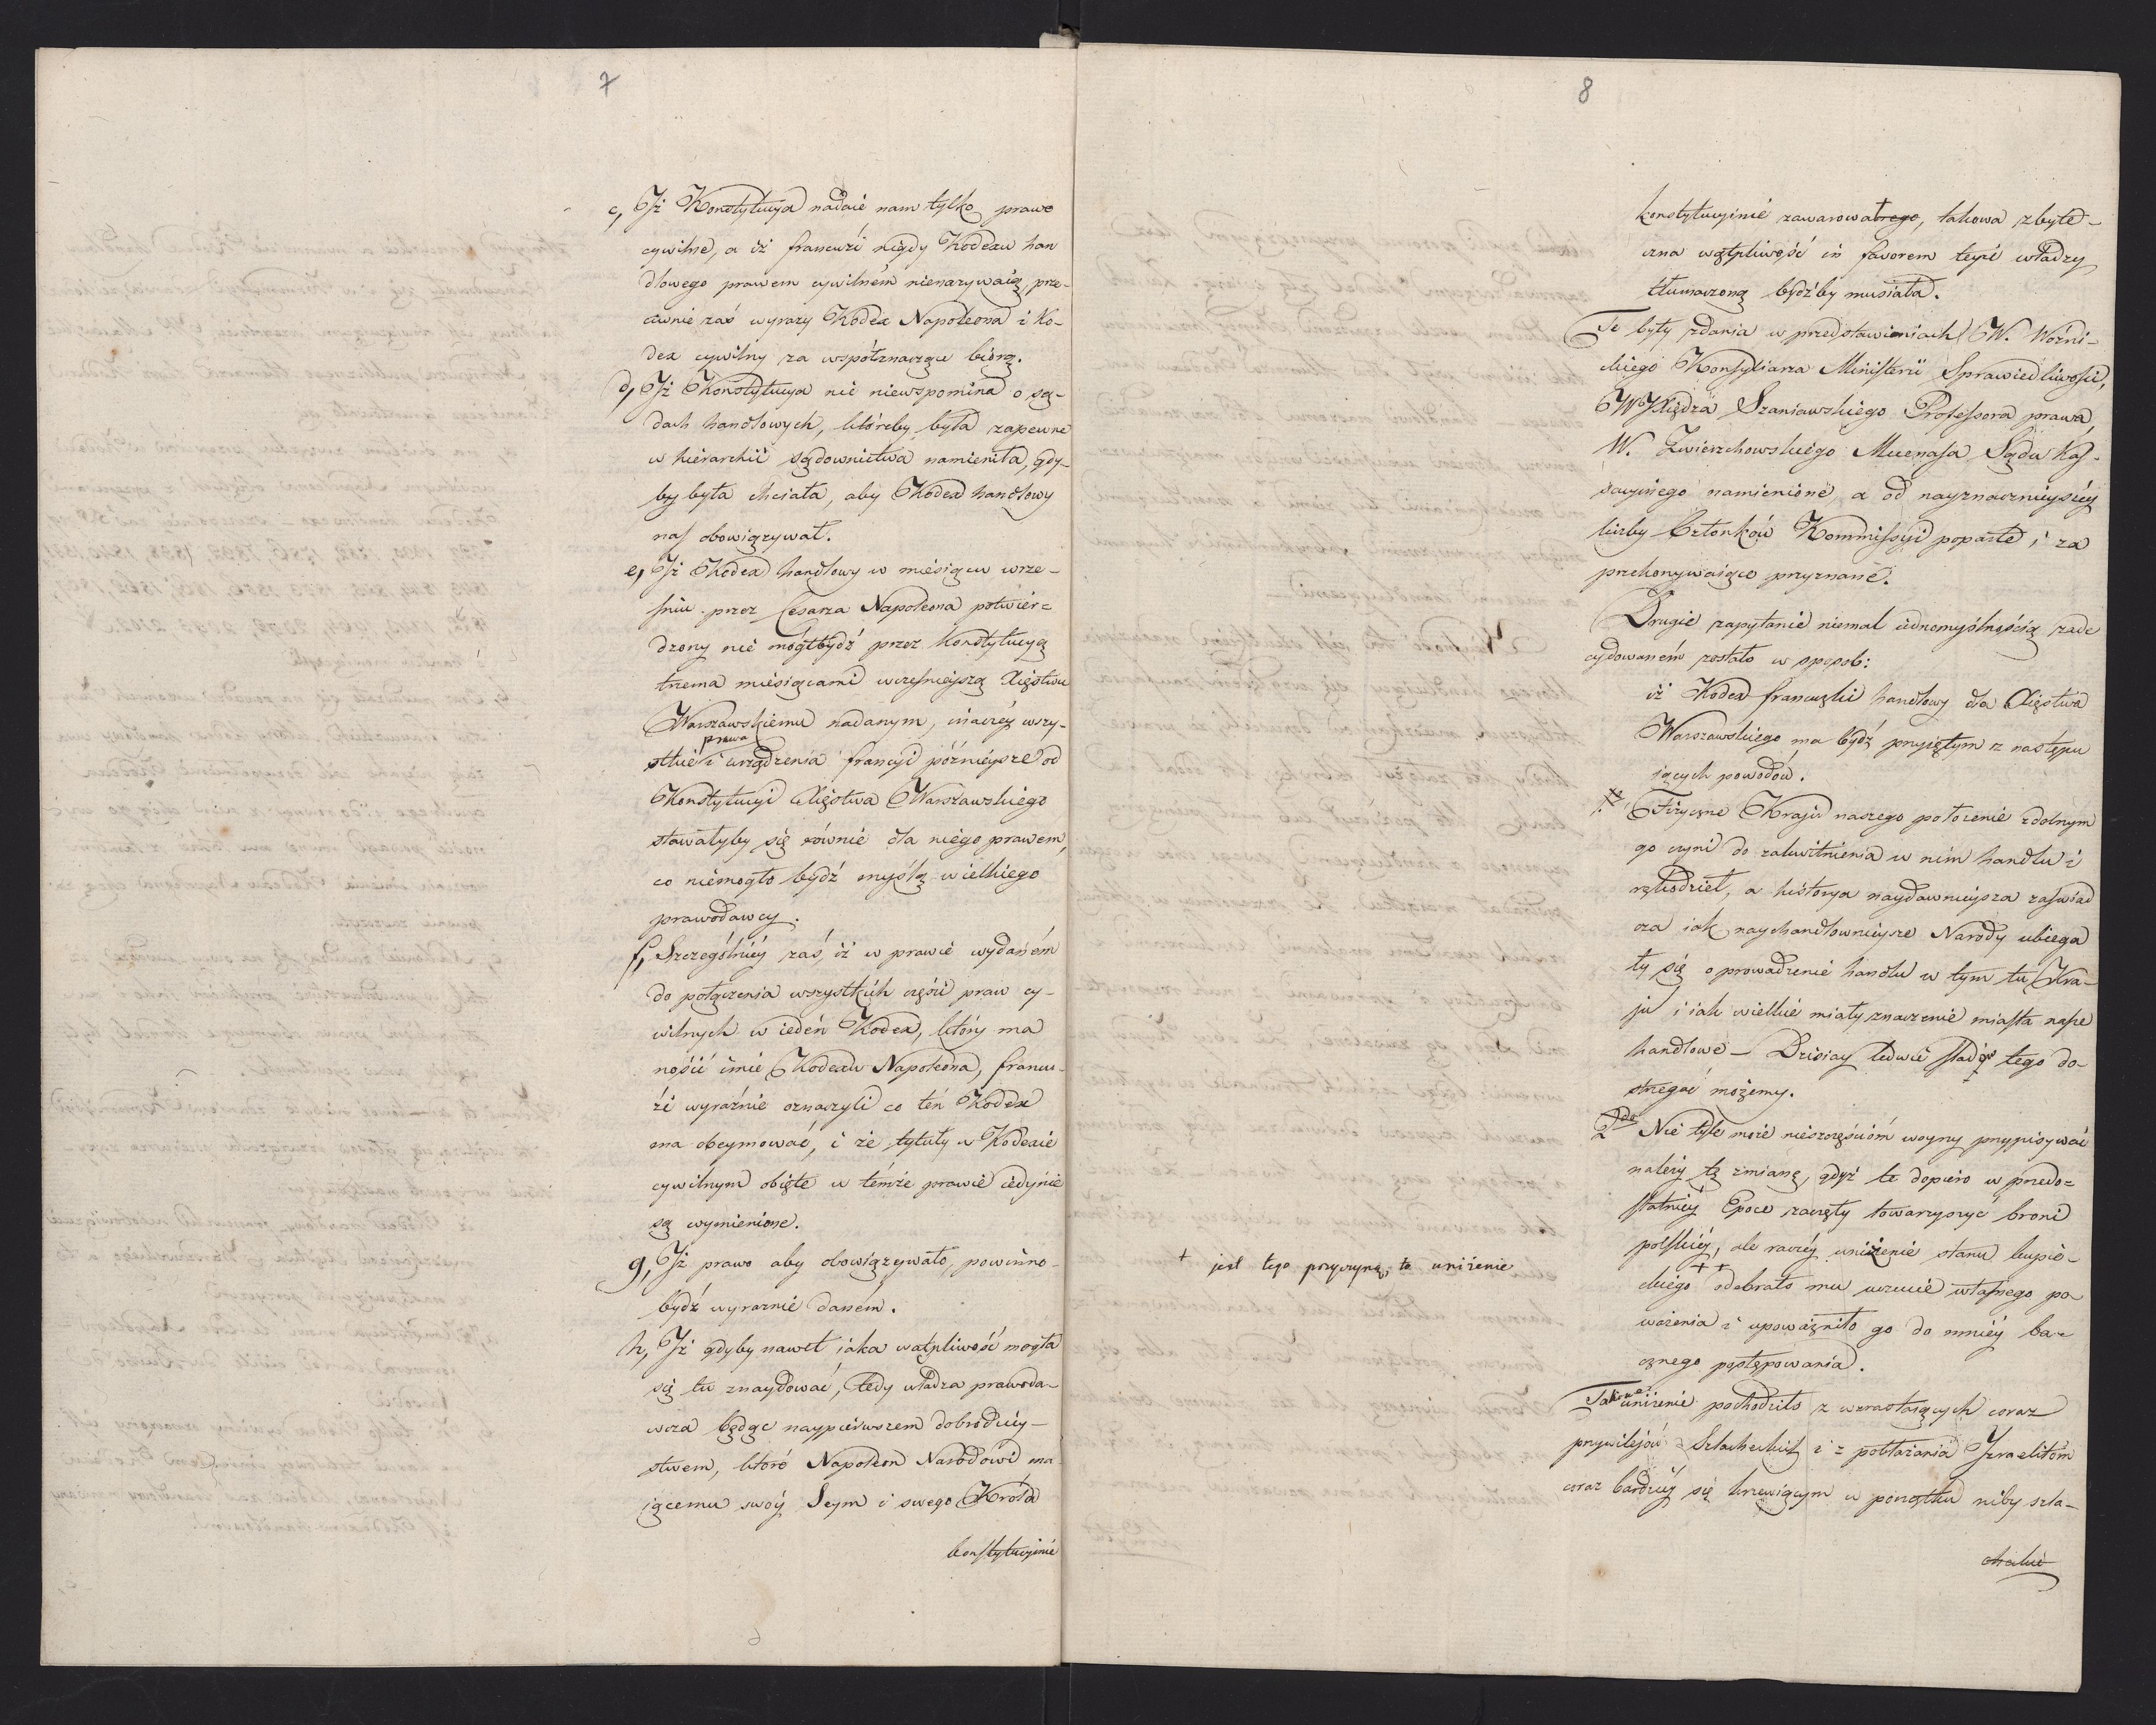 7
c, Iż Konstytucya nadaie nam tylko prawo
cywilne, a iż francuzi nigdy Kodexu han
dlowego prawem cywilném nienazywaią, prze-
ciwnie zaś wyrazy Kodex Napoleona i Ko-
dex cywilny za wspołznaczące biorą.
d, Iż Konstytucya nic niewspomina o są-
dach handlowych, któreby była zapewne
w hierarchii sądownictwa namieniła, gdy-
by była chciała, aby Kodex handlowy
nas obowiązywał.
e, Iż Kodex handlowy w miesiącu wrze-
śniu przez Cesarza Napoleona potwier-
dzony nie mógł bydź przez Konstytucyą
trzema miesiącami wcześnieyszą Xięstwu
Warszawskiemu nadanym, inaczéy wszy-
prawa
stkie i urządzenia francyi późnieysze od
Konstytucyi Xięstwa Warszawskiego
stawałyby się równie dla niego prawem,
co niemogło bydź myślą wielkiego
prawodawcy.
f, Szczególniéy zaś, iż w prawie wydaném
do połączenia wszystkich części praw cy-
wilnych w ieden Kodex, który ma
nosić imie Kodexu Napoleona, francu-
zi wyraźnie oznaczyli co ten Kodex
ma obeymować, i że tytuły w Kodexie
cywilnym obięte w témże prawie iedynie
są wymienione.
g, Iż prawo aby obowiązywało, powinno
bydź wyraznie daném.
h, Iż gdyby nawet iaka wątpliwość mogła
się tu znaydować, tedy władza prawoda-
wcza będąc naypierwszem dobrodziey-
stwem, które Napoleon Narodowi ma
iącemu swóy Seym i swego Króla
konstytucyinie
8
konstytucyinie zawarowałrego, takowa zbyte-
czna wątpliwość in favorem teyże władzy
tłumaczoną bydźby musiała.
Te były zdania w przedstawieniach W. Woźni-
ckiego Konsyliarza Ministerii Sprawiedliwości,
W Xiędza Szaniawskiego Professora prawa,
W. Zwierzchowskiego Mecenasa Sądu Kas-
sacyinego namienione, a od nayznacznieyszéy
liczby Członków Kommissyi poparte, i za
przekonywaiące przyznane.
Drugie zapytanie niemal iednomyślnością zade
cydowaném zostało w sposob:
iż Kodex francuzki handlowy dla Xięstwa
Warszawskiego ma bydź przyiętym z następu
iących powodow.
Fizyczne Kraiu naszego położenie zdolnym
go czyni do zakwitnienia w nim handlu i
rękodzieł, a historya naydawnieysza zaświad
cza iak nayhandlownieysze Narody ubiega
ły się o prowadzenie handlu w tym tu Kra-
ju i iak wielkie miały znaczenie miasta nasze
handlowe – Dzisiay ledwie slady tego do-
strzegać możemy.
2do Nie tyle może nieszczęściom woyny przypisywać
należy tę zmianę, gdyż te dopiero w przedo-
statniéy Epoce zaczęły towarzyszyć broni
polskiéy, ale raczéy uniżenie stanu kupie-
+ +
ckiego odebrało mu uczucie własnego po
ważenia i upoważniło go do mniéy ba-
cznego postępowania.
+ jest tego przyczyną, to uniżenie
Takowe uniżenie pochodziło z wzrastaiących coraz
przywilejów Szlacheckich i z pobłażania Izraelitom
coraz bardziéy się krzewiącym w początku niby szla-
checkie